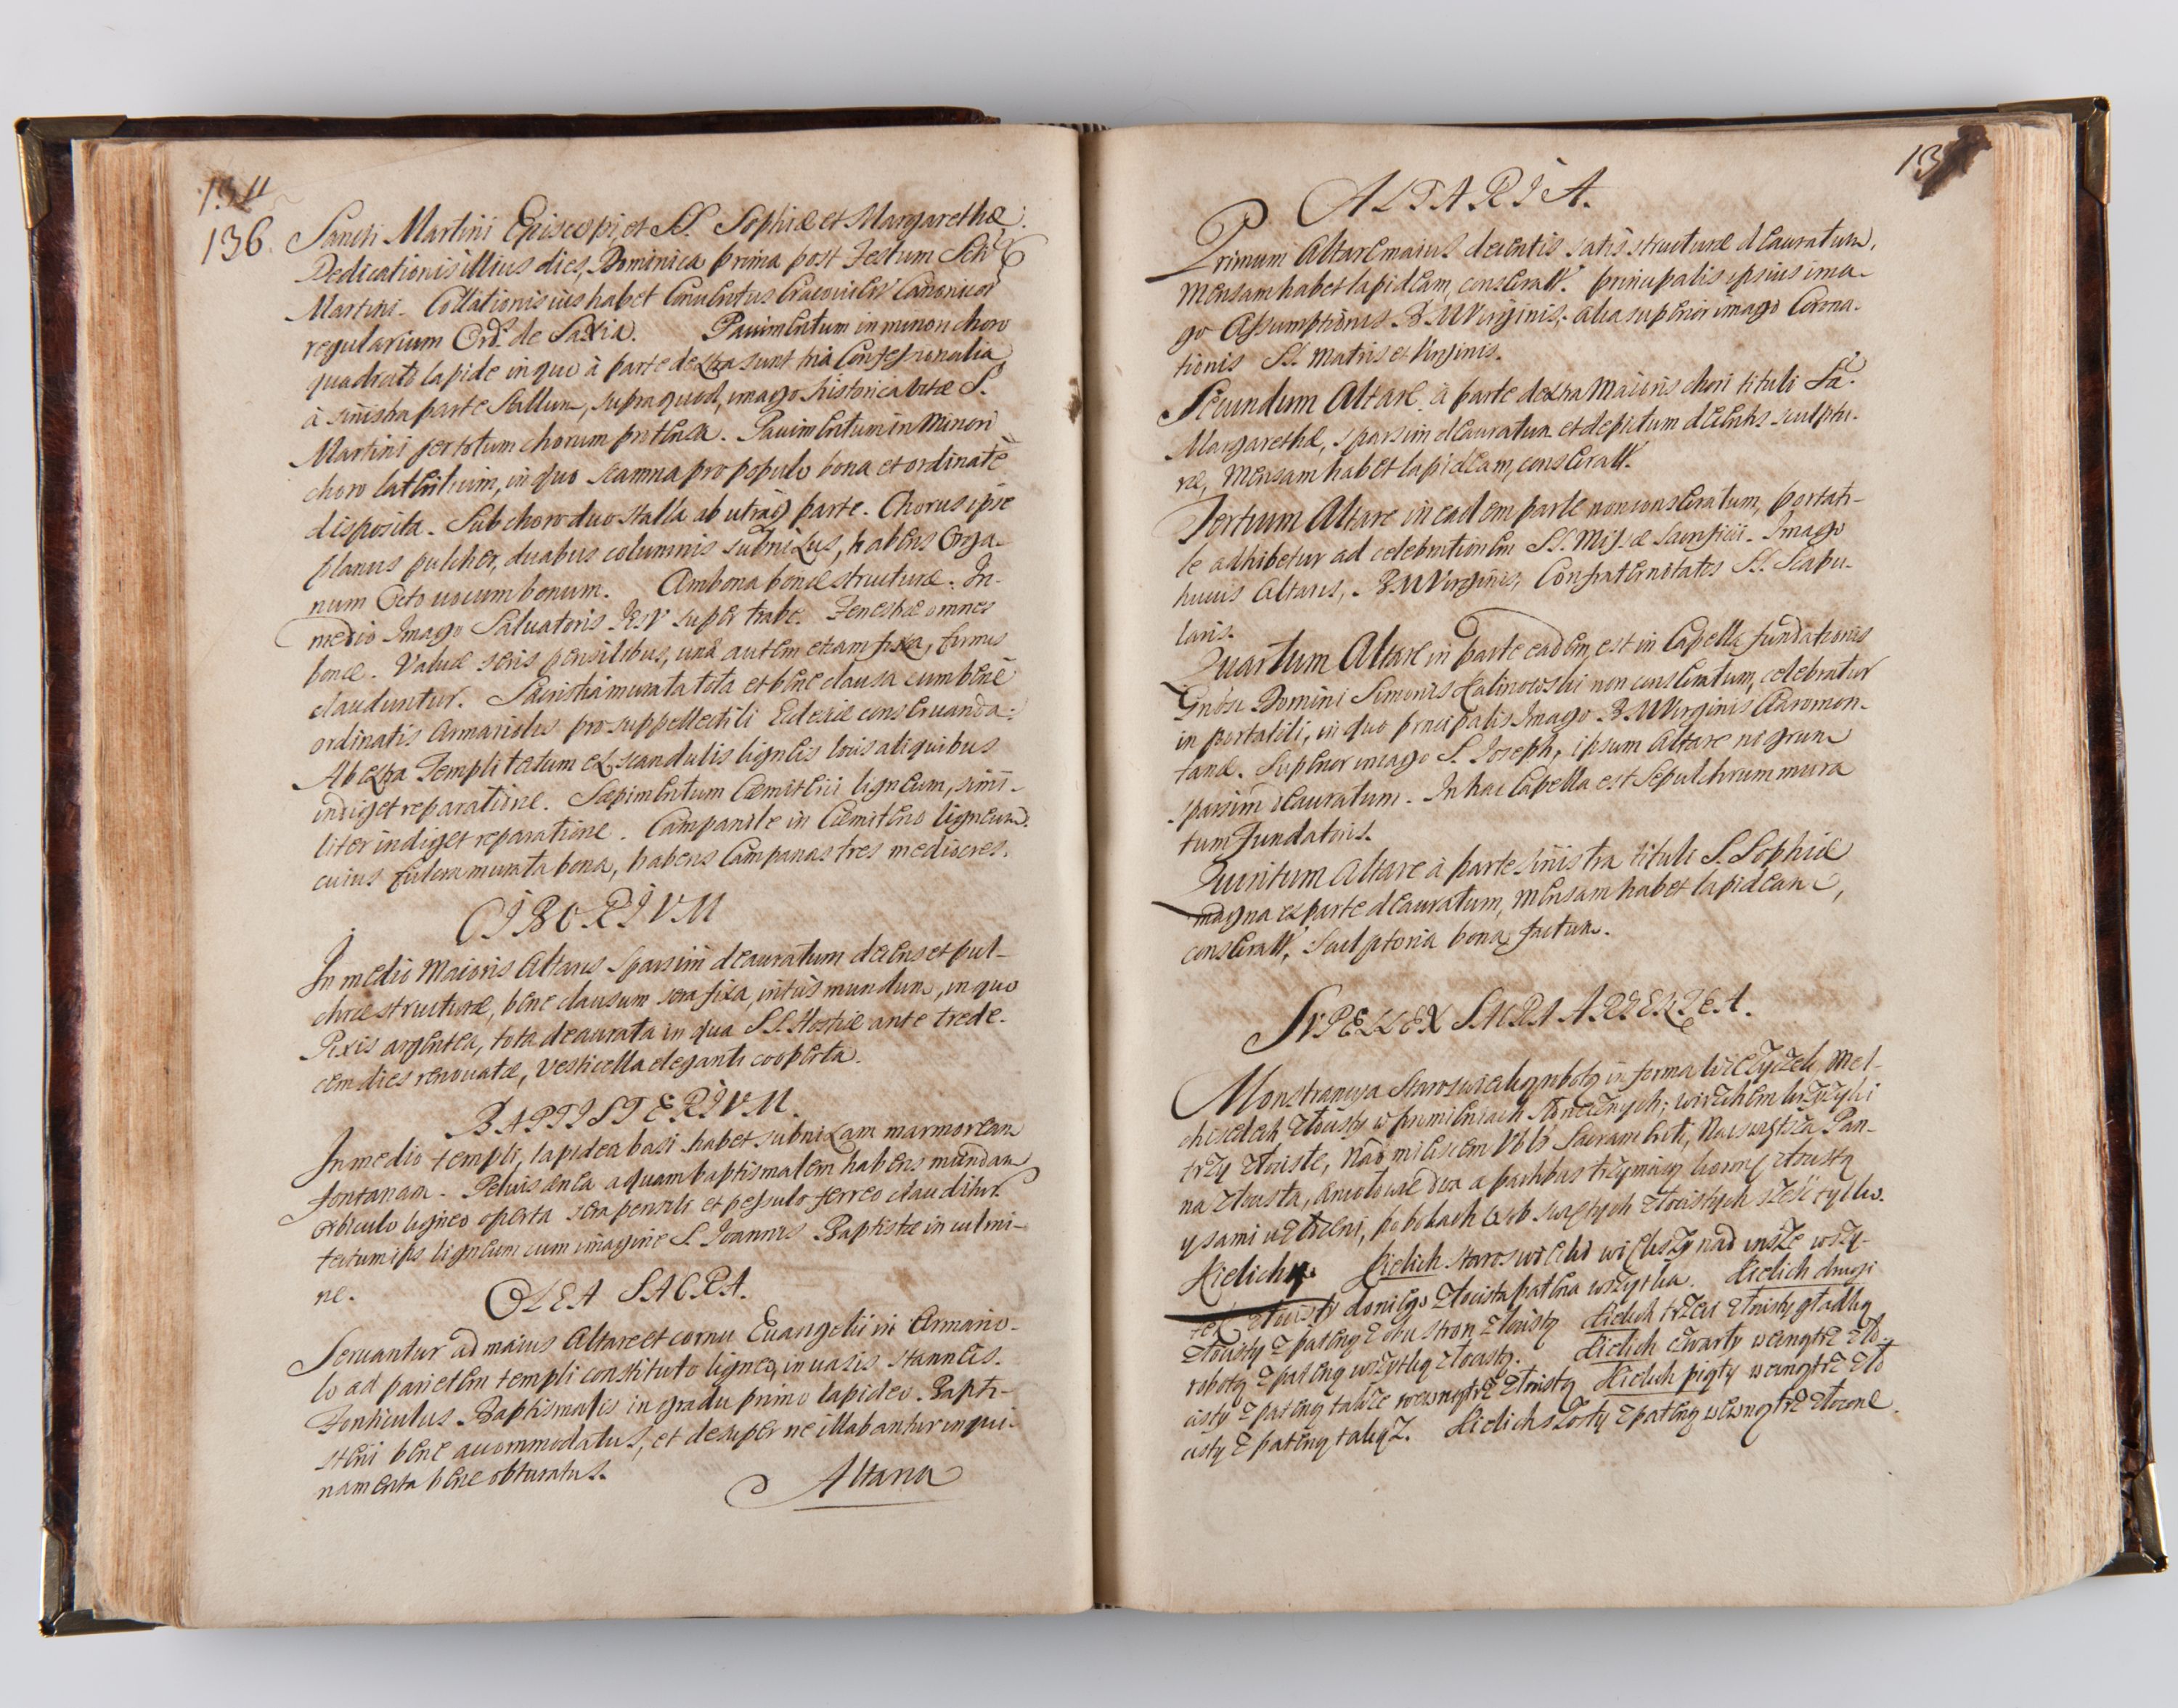 134
136.
Sancti Martini Episcopi, et SS. Sophiæ et Margarethæ:
Dedicationis illius dies, Dominica prima post Festum Scti
Martini. Collationis ius habet Conuentus Cracouien Canonicor
regularium Ord. de Saxia. Pauimentum in minori choro
quadrato lapide in quo à parte dextra sunt tria Confessionalia
à sinistra parte Stallum, supra quod, imago historica vitæ S.
Martini per totum chorum protensa. Pauimentum in Minori
choro lateritium, in quo scamna pro populo bona et ordinatè
disposita. Sub choro duo stalla ab utraq parte. Chorus ipse
planus pulcher, duabus columnis subnixus, habens Orga-
num Octo uocum bonum. Ambona bonæ structuræ. In
medio Imago Saluatoris IESV super trabe. Fenestræ omnes
bonæ. Valuæ seris pensilibus, unà autem etiam fixa, firmis
clauduntur. Sacristia murata tota et bene clausa cum bene
ordinatis Armariolis pro suppellectili Ecclesiæ conseruanda.
Ab extra Templi tectum ex scandulis ligneis locis aliquibus
indiget reparatione. Sæpimentum Cæmiterii ligneum, simi-
liter indiget reparatione. Campanile in Cæmiterio ligneum.
cuius fulcra murata bona, habens Campanas tres mediocres.
CIBORIVM
In medio Maioris Altaris sparsim deauratum decens et pul-
chræ structuræ, bene clausum sera fixa, intùs mundum, in quo
Pixis argentea, tota deaurata in qua SS. Hostiæ ante trede-
cem dies renouatæ, vesticella eleganti cooperta.
BAPTISTERIVM.
In medio templi, lapidea basi habet subnixam marmorean
fontanam. Peluis ænea aquam baptismalem habens mundam
orbiculo ligneo operta sera pensili et pessulo ferreo clauditur.
tectum ips ligneum cum imagine S. Ioannis Baptistæ in culmi-
ne.
OLEA SACRA.
Seruantur ad maius Altare et cornu Euangelii in Armario-
lo ad parietem templi constituto ligneo, in uasis stanneis.
Fonticulus Baptismalis in gradu primo lapideo Bapti-
sterii bene accommodatus, et desuper ne illabantur inqui-
namenta bene obturatus.
Altaria
13
ALTARIA.
Primum Altare maius decentis satis structuræ deauratum,
Mensam habet lapideam, consecratu. principalis ipsius ima-
go Assumptionis B.M Virginis, alia superior imago Corona-
tionis SS. Matris et Virginis.
Secundum Altare à parte dextra Maioris chori tituli Sa.
Margarethæ, sparsim deauratum et depictum decentis sculptu-
ræ, Mensam habet lapideam, consecratu.
Tertium Altare in eadem parte non consecratum, portati-
le adhibetur ad celebrationem SS. Missæ Sacrificii. Imago
huius Altaris, B.M Virginis, Confraternitatis SS. Scapu-
laris.
Quartum Altare in parte eadem, est in Capella fundationis
Gnosi Domini Simonis Kalinowski non consecratum, celebratur
in portatili, in quo principalis Imago B.M Virginis Claromon-
tanæ. Superior imago S. Ioseph, ipsum Altare nigrum
sparsim deauratum. In hac Capella est Sepulchrum mura
tum Fundatoris.
Quintum Altare à parte sinistra tituli S. Sophiæ
magna ex parte deauratum, Mensam habet lapideam,
consecratu. Sculptoria bona factura.
SVPELLEX SACRA ARGENTEA.
Monstrancya Staroswiecką robotą in forma wieżyczek, Mel-
chisedech złocisty w promieniach słonecznych; wierzchem krzyżyki
trzy złociste, nad mieiscem Vbi Sacramenti, Naswiętsza Pan-
na złocista, Aniołowie dwa a partibus trzymaią koronę złocistą
y sami uzłoceni, po bokach osob swiętych złocistych sześć tylko.
Kielichy. Kielich staroswiecki większy nad insze wszy-
tek złocisty do niego złocista patena wszytka. Kielich drugi
złocisty z pateną z obu stron złocistą Kielich trzeci złocisty gładką
robotą z pateną wszytką złocistą. Kielich czwarty wewnątrz zło-
cisty z pateną także wewnątrz złocistą Kielich piąty wewnątrz zło
cisty z pateną takąż. Kielich szosty z pateną wewnątrz złocone.